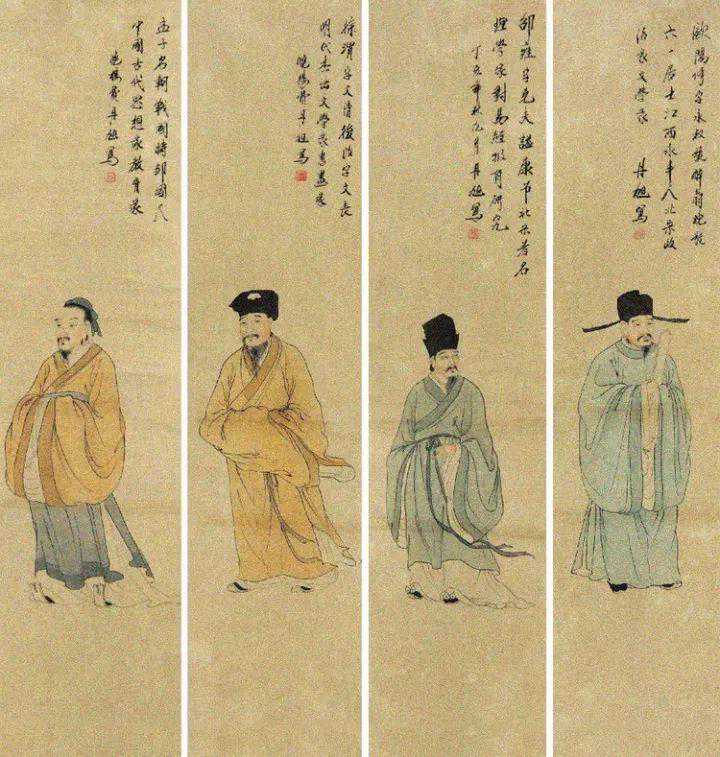 歐陽修字永叔號醉翁晚號
六一居士江西永丰人北宋政
治家文學家
丹旭寫
邵雍字堯夫諡康节北宋著名
理學家對易經极有研究
丁亥年秋月丹旭寫
徐渭字文清後改字文長
明代杰出文學家書畫家
曉樓費丹旭寫
孟子名軻戰國時鄒國人
中國古代思想家教育家
曉樓費丹旭寫